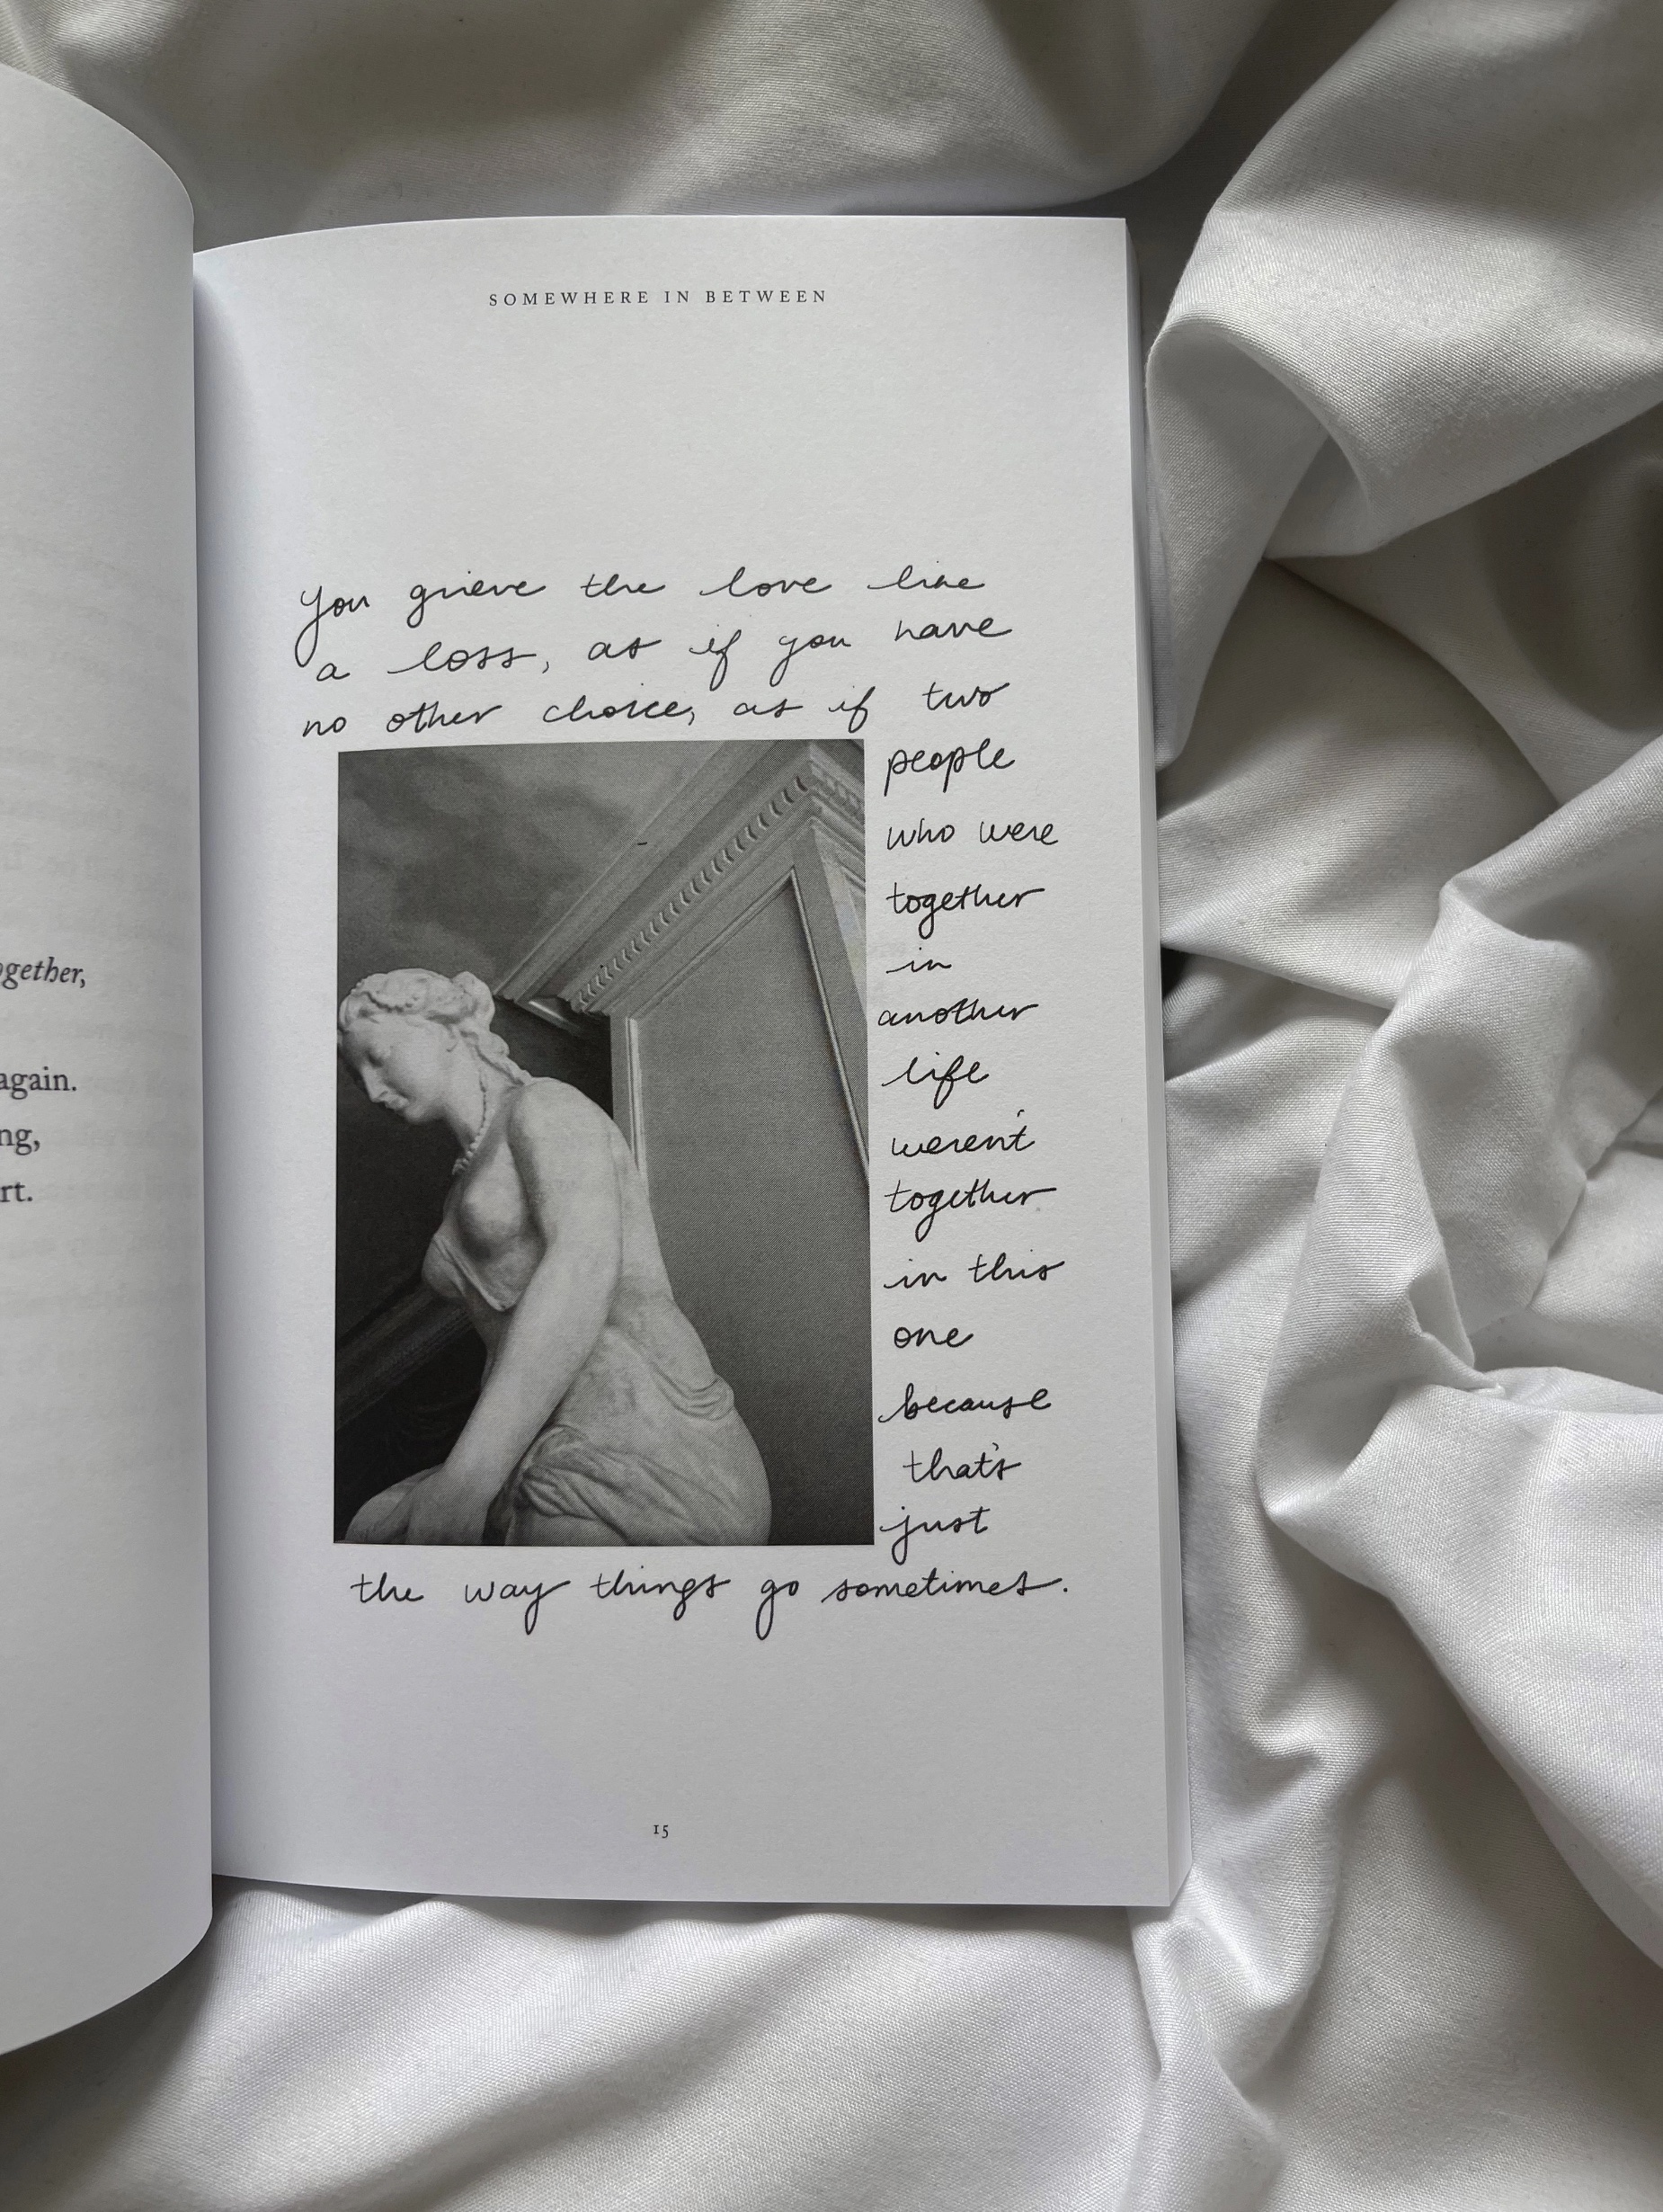 SOMEWHERE IN BETWEEN
you grieve the love like
a loss, as if you have
no other choice, as if two
people
who were
together
in
another
life
weren't
together
in this
one
because
that's
just
the way things go sometimes.
15
ogether,
again.
ng,
rt.